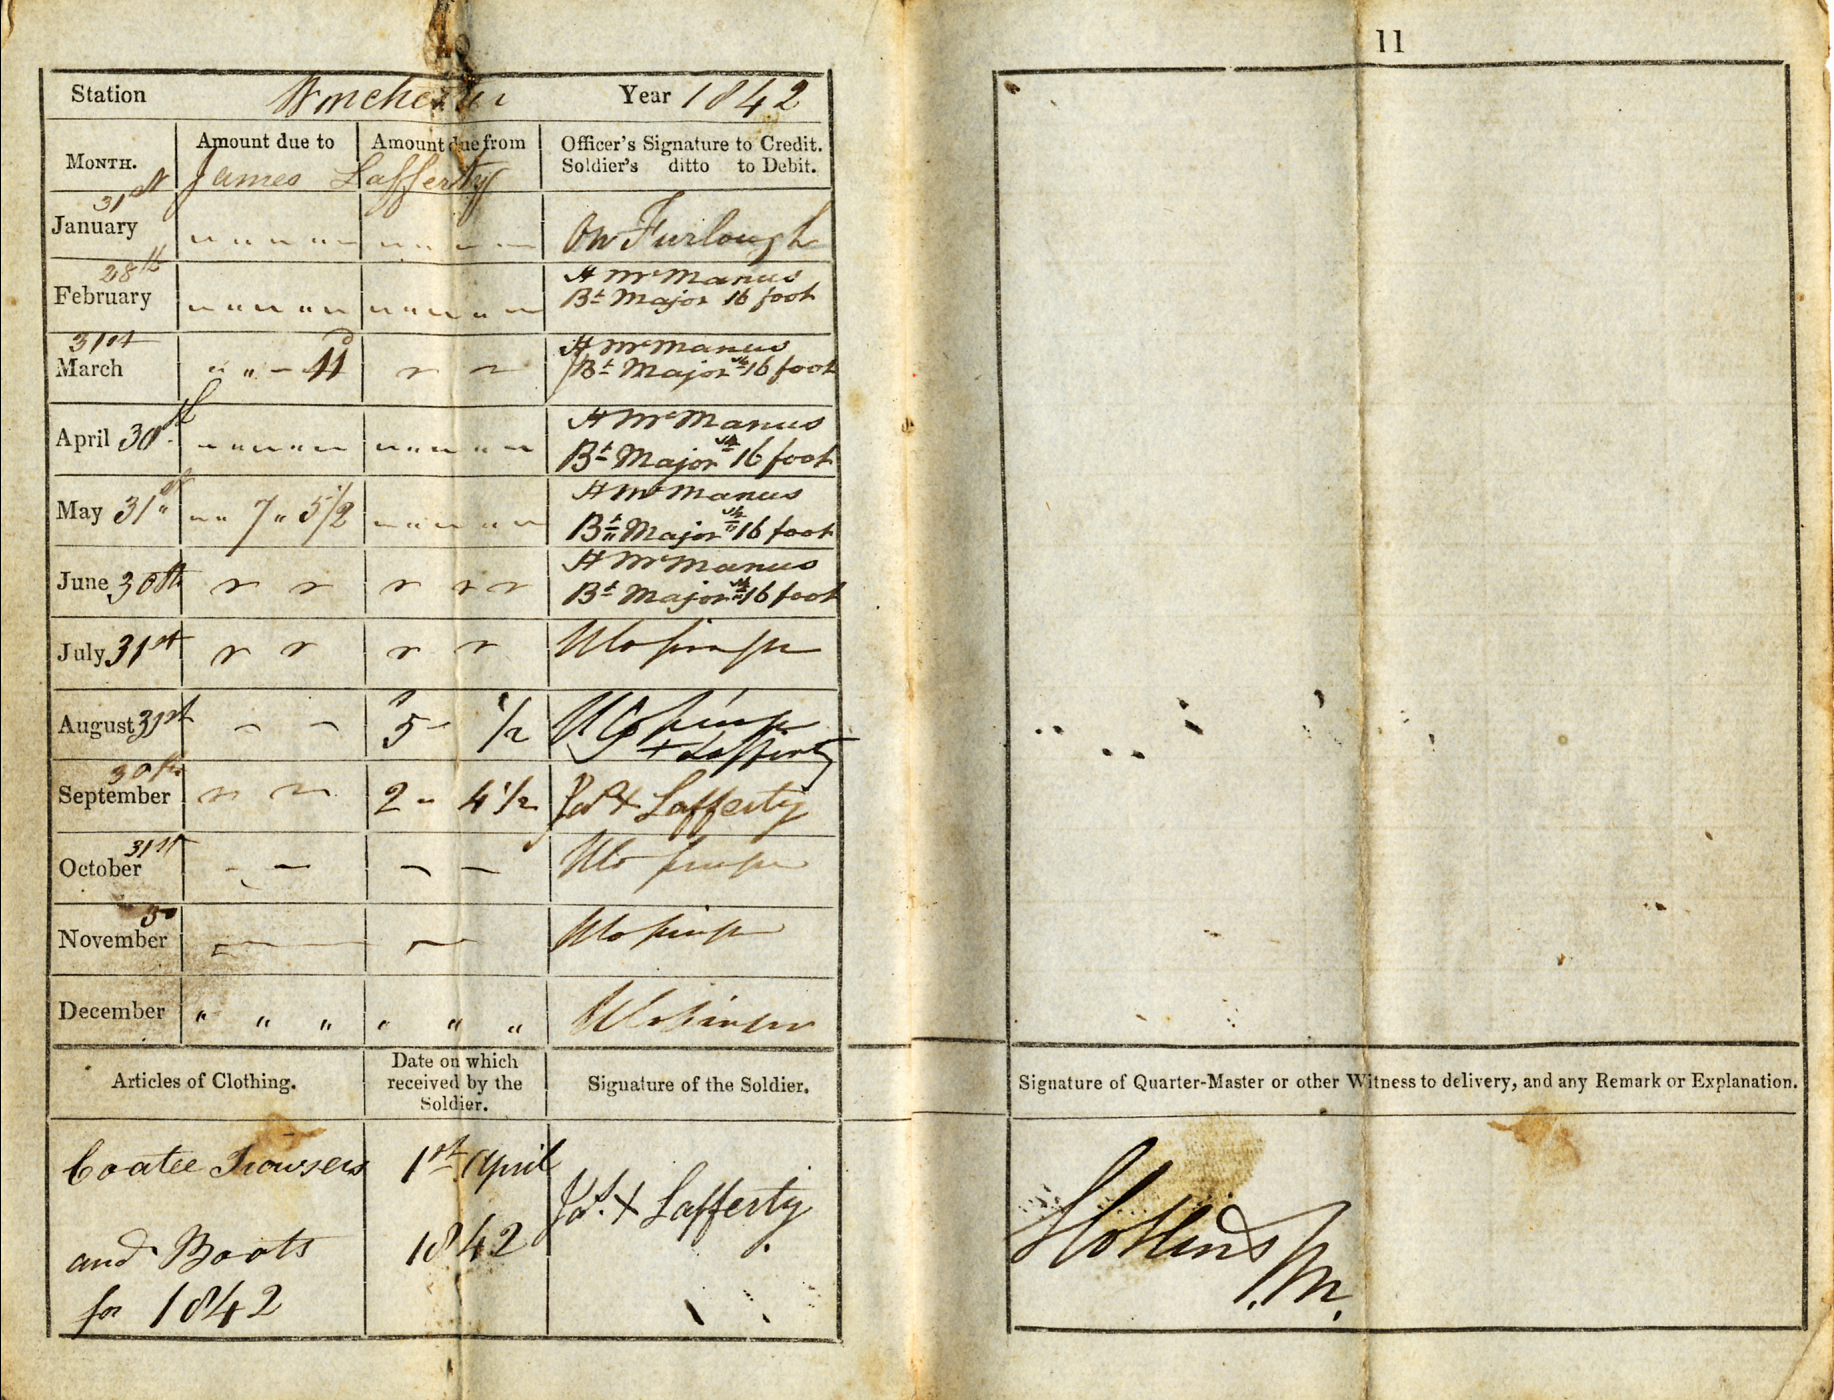 11
Station Winchester Year 1842
MONTH. Amount due to Amount due from Officer's Signature to Credit.
Soldier's ditto to Debit.
James Lafferty
January 31st " " " " " " " " " " On Furlough
February 28th " " " " " " " " " " H McManus
Bt Major 16 foot
March 31st " " - 11d H McManus
Bt Major 16 foot
April 30th " " " " " " " " " " H McManus
Bt Major 16 foot
May 31st " " 7 " 5 1/2 " " " " " H McManus
Bt Major 16 foot
June 30th H McManus
Bt Major 16 foot
July 31st
August 31st - - 5 - 1/2
+ Lafferty
September 30th 2 " 4 1/2 Jas + Lafferty
October 31st - - - -
November 30 - -
December " " " " " "
Articles of Clothing. Date on which
received by the
Soldier. Signature of the Soldier. Signature of Quarter-Master or other Witness to delivery, and any Remark or Explanation.
Coatee Trowsers 1st April
Jas. + Lafferty
and Boots 1842
for 1842